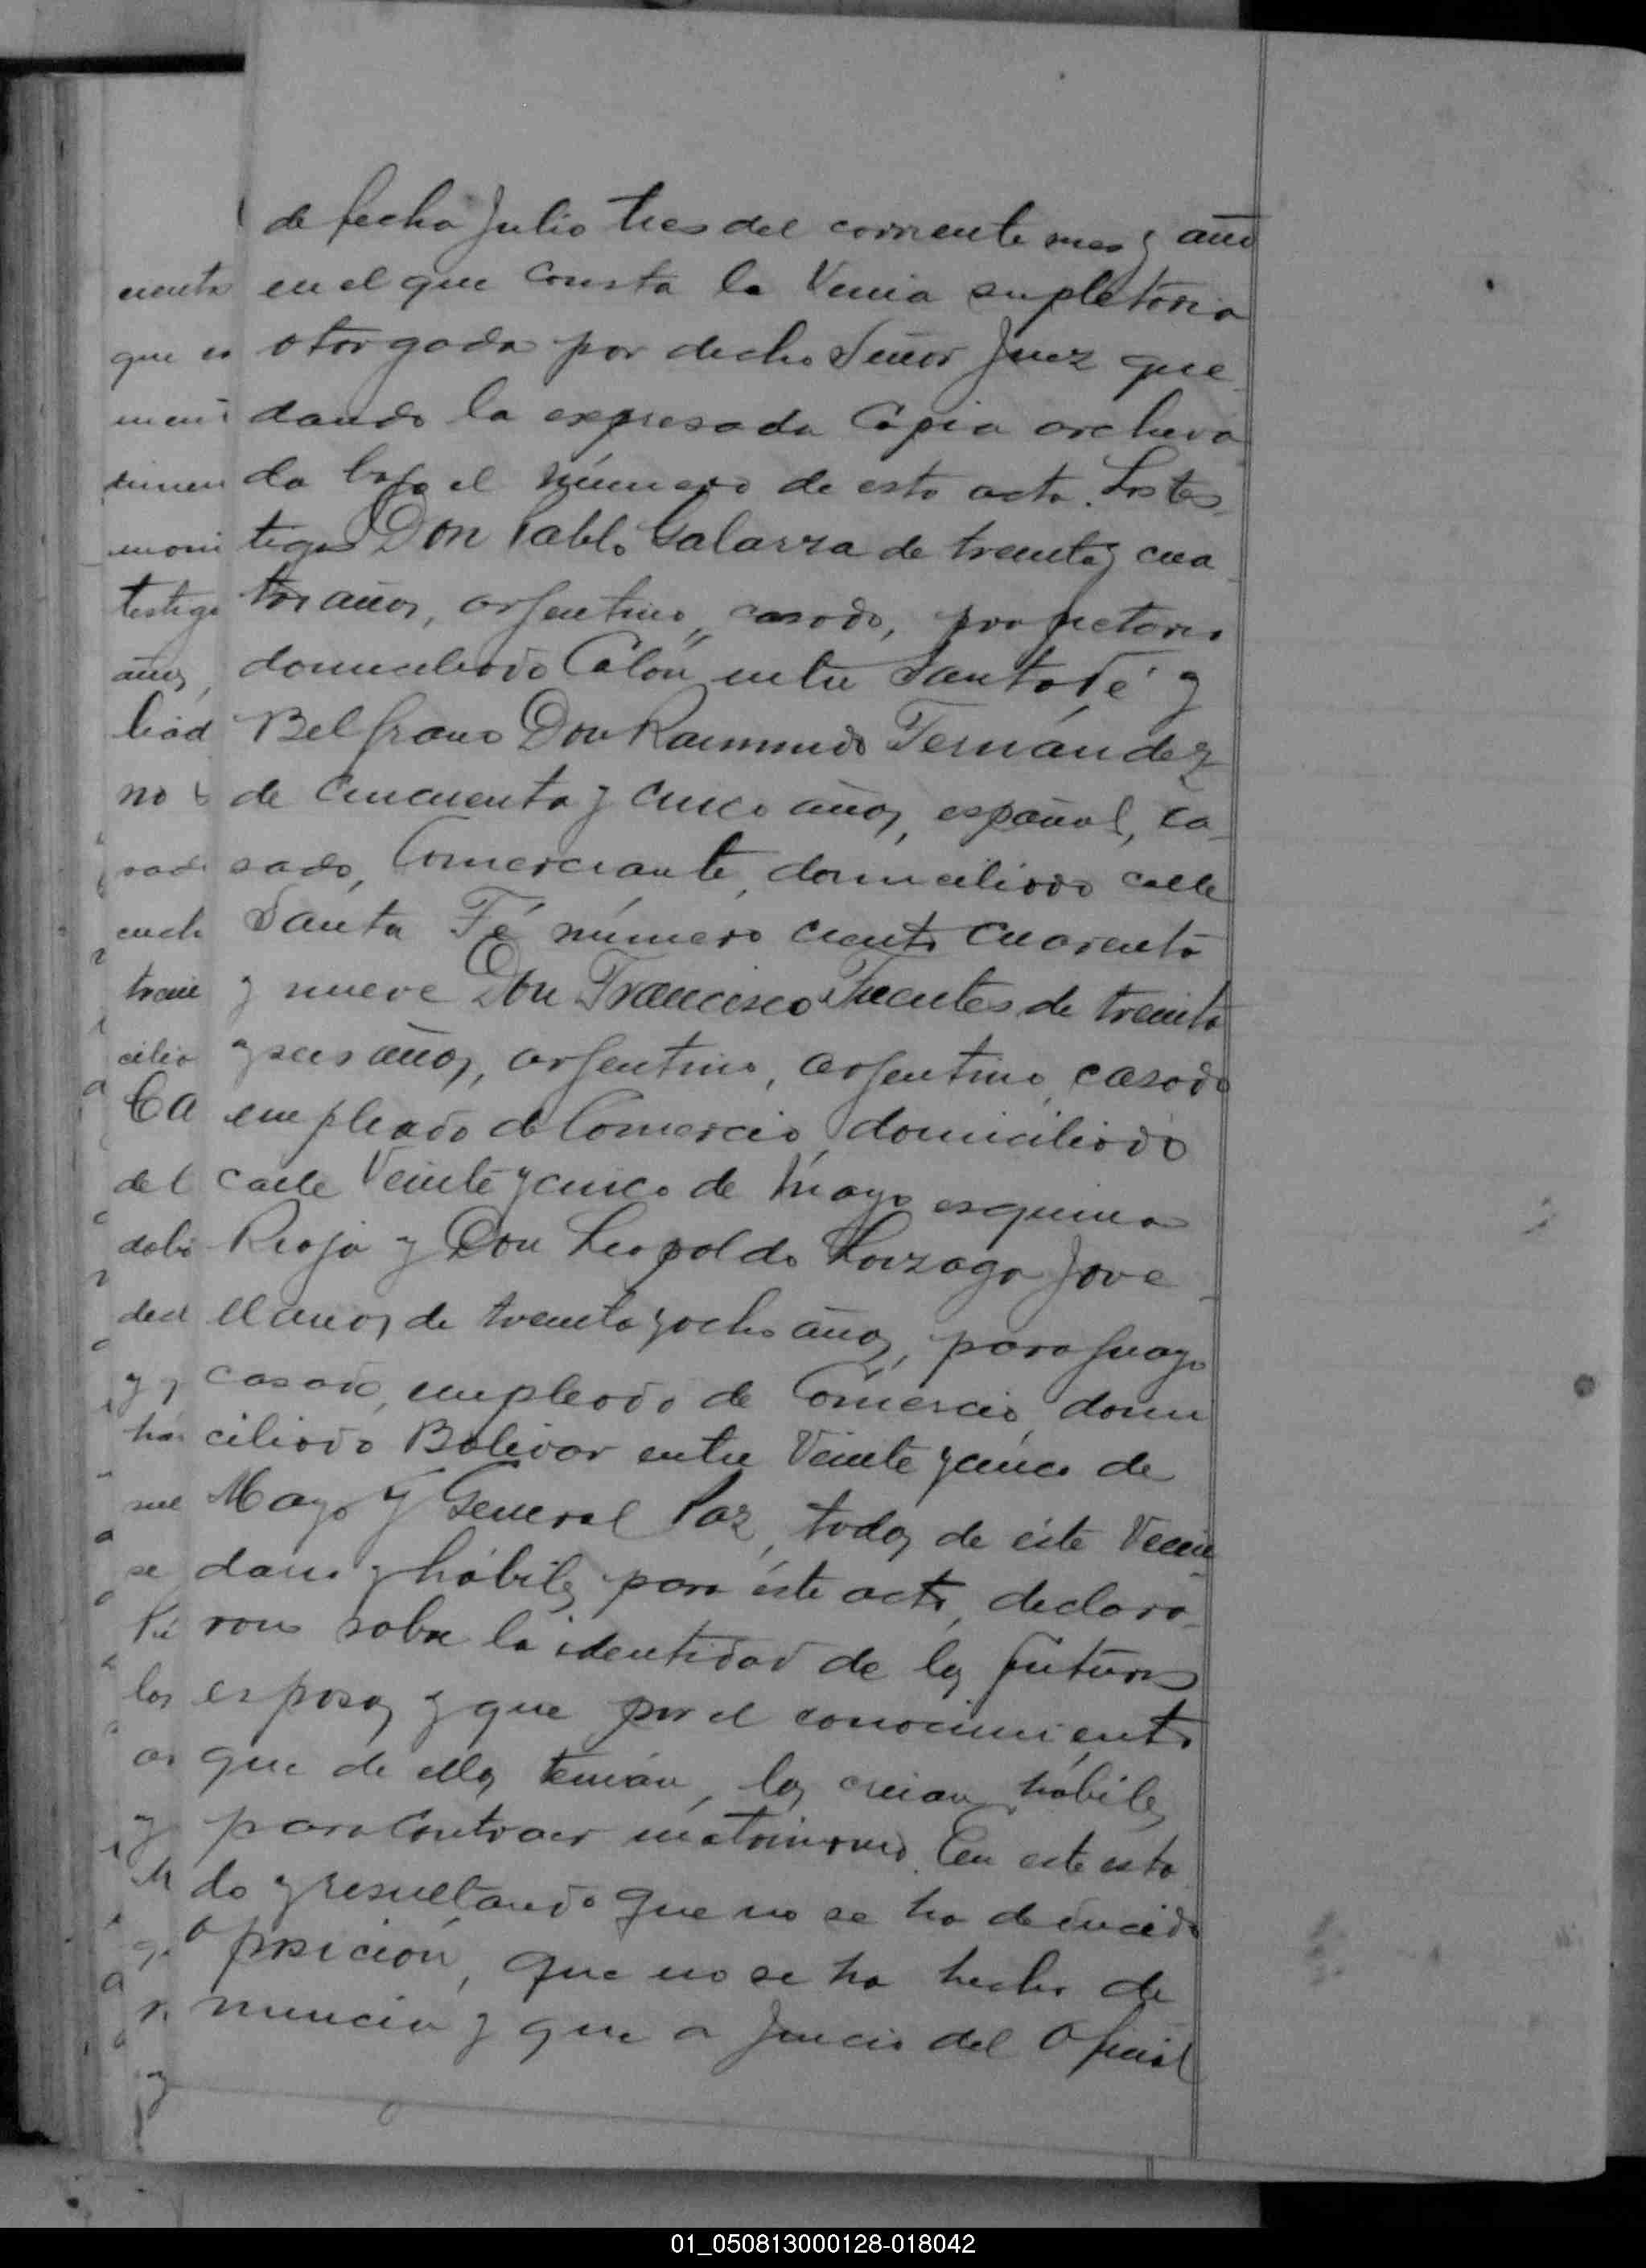 de fecha Julio tres del corriente mes y año
en el que consta la Venia supletoria
otorgada por dicho Señor Juez que
dando la expresada Copia archiva
da bajo el número de esta acta. Los tes
tigos Don Pablo Galarza de treinta y cua
tro años, argentino, casado, propietario
domiciliado Colón entre Santa Fé y
Belgrano Don Raimundo Fernández
de cincuenta y cinco años, español, ca
sado, Comerciante, domiciliado calle
Santa Fé número ciento cuarenta
y nueve Don Francisco Fuentes de treinta
y seis años, argentino, argentino, casado
empleado de Comercio domiciliado
calle Veinte y cinco de Mayo esquina
Rioja y Don Leopoldo Loizaga Jove
llanos de treinta y ocho años, paraguayo
casado, empleado de Comercio, domi
ciliado Bolivar entre Veinte y cinco de
Mayo y General Paz, todos de éste Vecin
dario y hábiles para éste acto, declara
ron sobre la identidad de los futuros
esposos y que por el conocimiento
que de ellos tenían, los creían hábiles
para contraer matrimonio. En este esta
do y resultando que no se ha deducido
oposición, que no se ha hecho de
nuncia y que a juicio del Oficial
cuenta
que es
testigo
años,
liad
no
trein
cilia
Ca
del
los
y
01_050813000128-018042